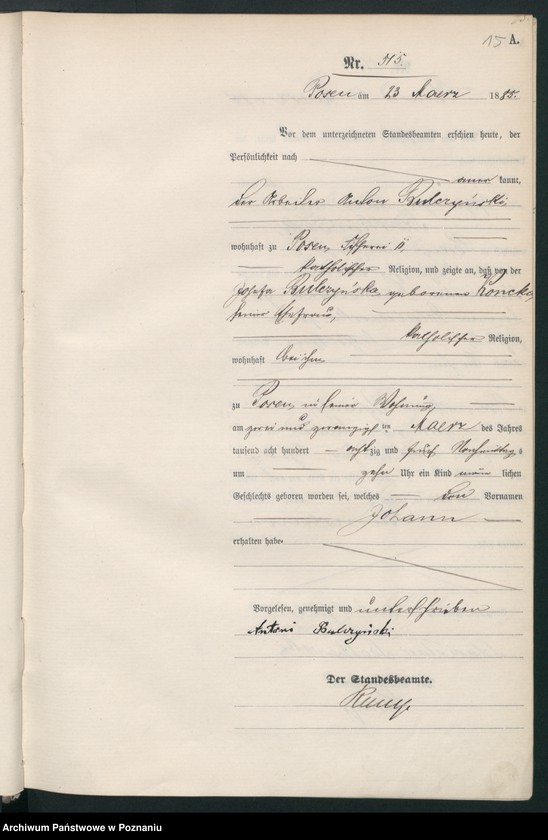 15 A.
Nr. 515.
Posen am 23 Maerz 1885.
Vor dem unterzeichneten Standesbeamten erschien heute, der
Persönlichkeit nach
kannt,
der Arbeiter Anton Bulczyński
wohnhaft zu Posen,
katholischer Religion, und zeigte an, daß von der
Josefa Bulczyńska geborenen Koncka
seiner Ehefrau,
katholischer Religion,
wohnhaft bei ihm
zu Posen, in seiner Wohnung,
am zwei und zwanzigsten Maerz des Jahres
tausend acht hundert achtzig und fünf Nachmittags
um zehn Uhr ein Kind männlichen
Geschlechts geboren worden sei, welches den Vornamen
Johann
erhalten habe.
Vorgelesen, genehmigt und unterschrieben
Antoni Bulczyński
Der Standesbeamte.
Archiwum Państwowe w Poznaniu